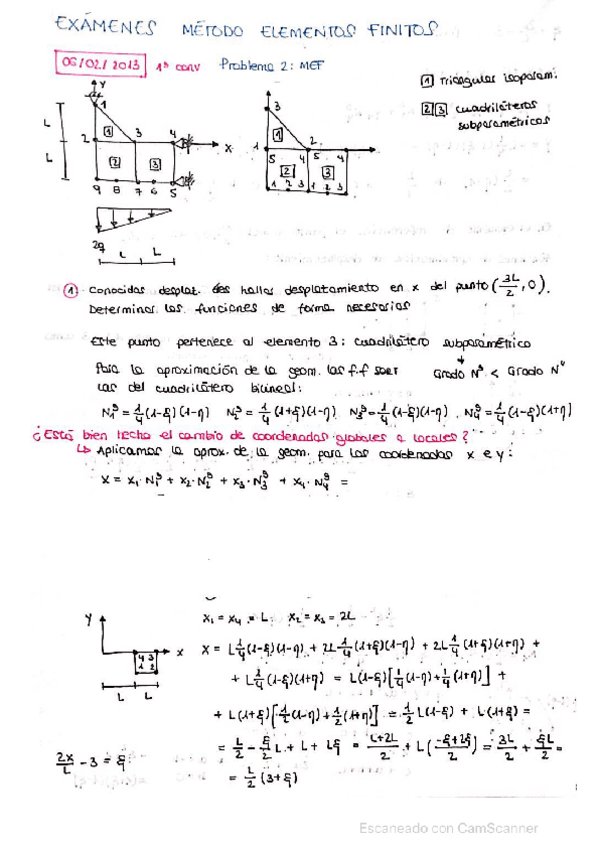 EXÁMENES MÉTODO ELEMENTOS FINITOS
06/02/2013 1ª conv Problema 2: MEF
1 Triangular isoparam.
2 3 cuadriláteros
subparamétricos
Y
1
L
1
3
2 3 4 X
1 2
L
2 3
5 4 5 4
2 3
9 8 7 6 5
1 2 3 1 2 3
2q
L L
① Conocidos desplaz. hallar desplazamiento en x del punto (3L/2, 0).
Determinar las funciones de forma necesarias
Este punto pertenece al elemento 3: cuadrilátero subparamétrico
Para la aproximación de la geom. las f.f son Grado Nᵍ < Grado Nᵘ
las del cuadrilátero bilineal:
N₁ᵍ = 1/4 (1-ξ)(1-η) N₂ᵍ = 1/4 (1+ξ)(1-η) N₃ᵍ = 1/4 (1-ξ)(1-η) . N₄ᵍ = 1/4 (1-ξ)(1+η)
¿Está bien hecho el cambio de coordenadas globales a locales?
↳ Aplicamos la aprox. de la geom. para las coordenadas x e y:
X = x₁·N₁ᵍ + x₂·N₂ᵍ + x₃·N₃ᵍ + x₄·N₄ᵍ =
Y
X₁ = X₄ = L X₂ = X₃ = 2L
x
4 3
1 2
L L
X = L 1/4 (1-ξ)(1-η) + 2L 1/4 (1+ξ)(1-η) + 2L 1/4 (1+ξ)(1+η) +
+ L 1/4 (1-ξ)(1+η) = L(1-ξ)[1/4 (1-η) + 1/4 (1+η)] +
+ L(1+ξ)[1/2 (1-η) + 1/2 (1+η)] = 1/2 L(1-ξ) + L(1+ξ) =
= L/2 - ξ/2 L + L + Lξ = (L+2L)/2 + L((-ξ+2ξ)/2) = 3L/2 + ξL/2 =
2x/L - 3 = ξ
= L/2 (3+ξ)
Escaneado con CamScanner